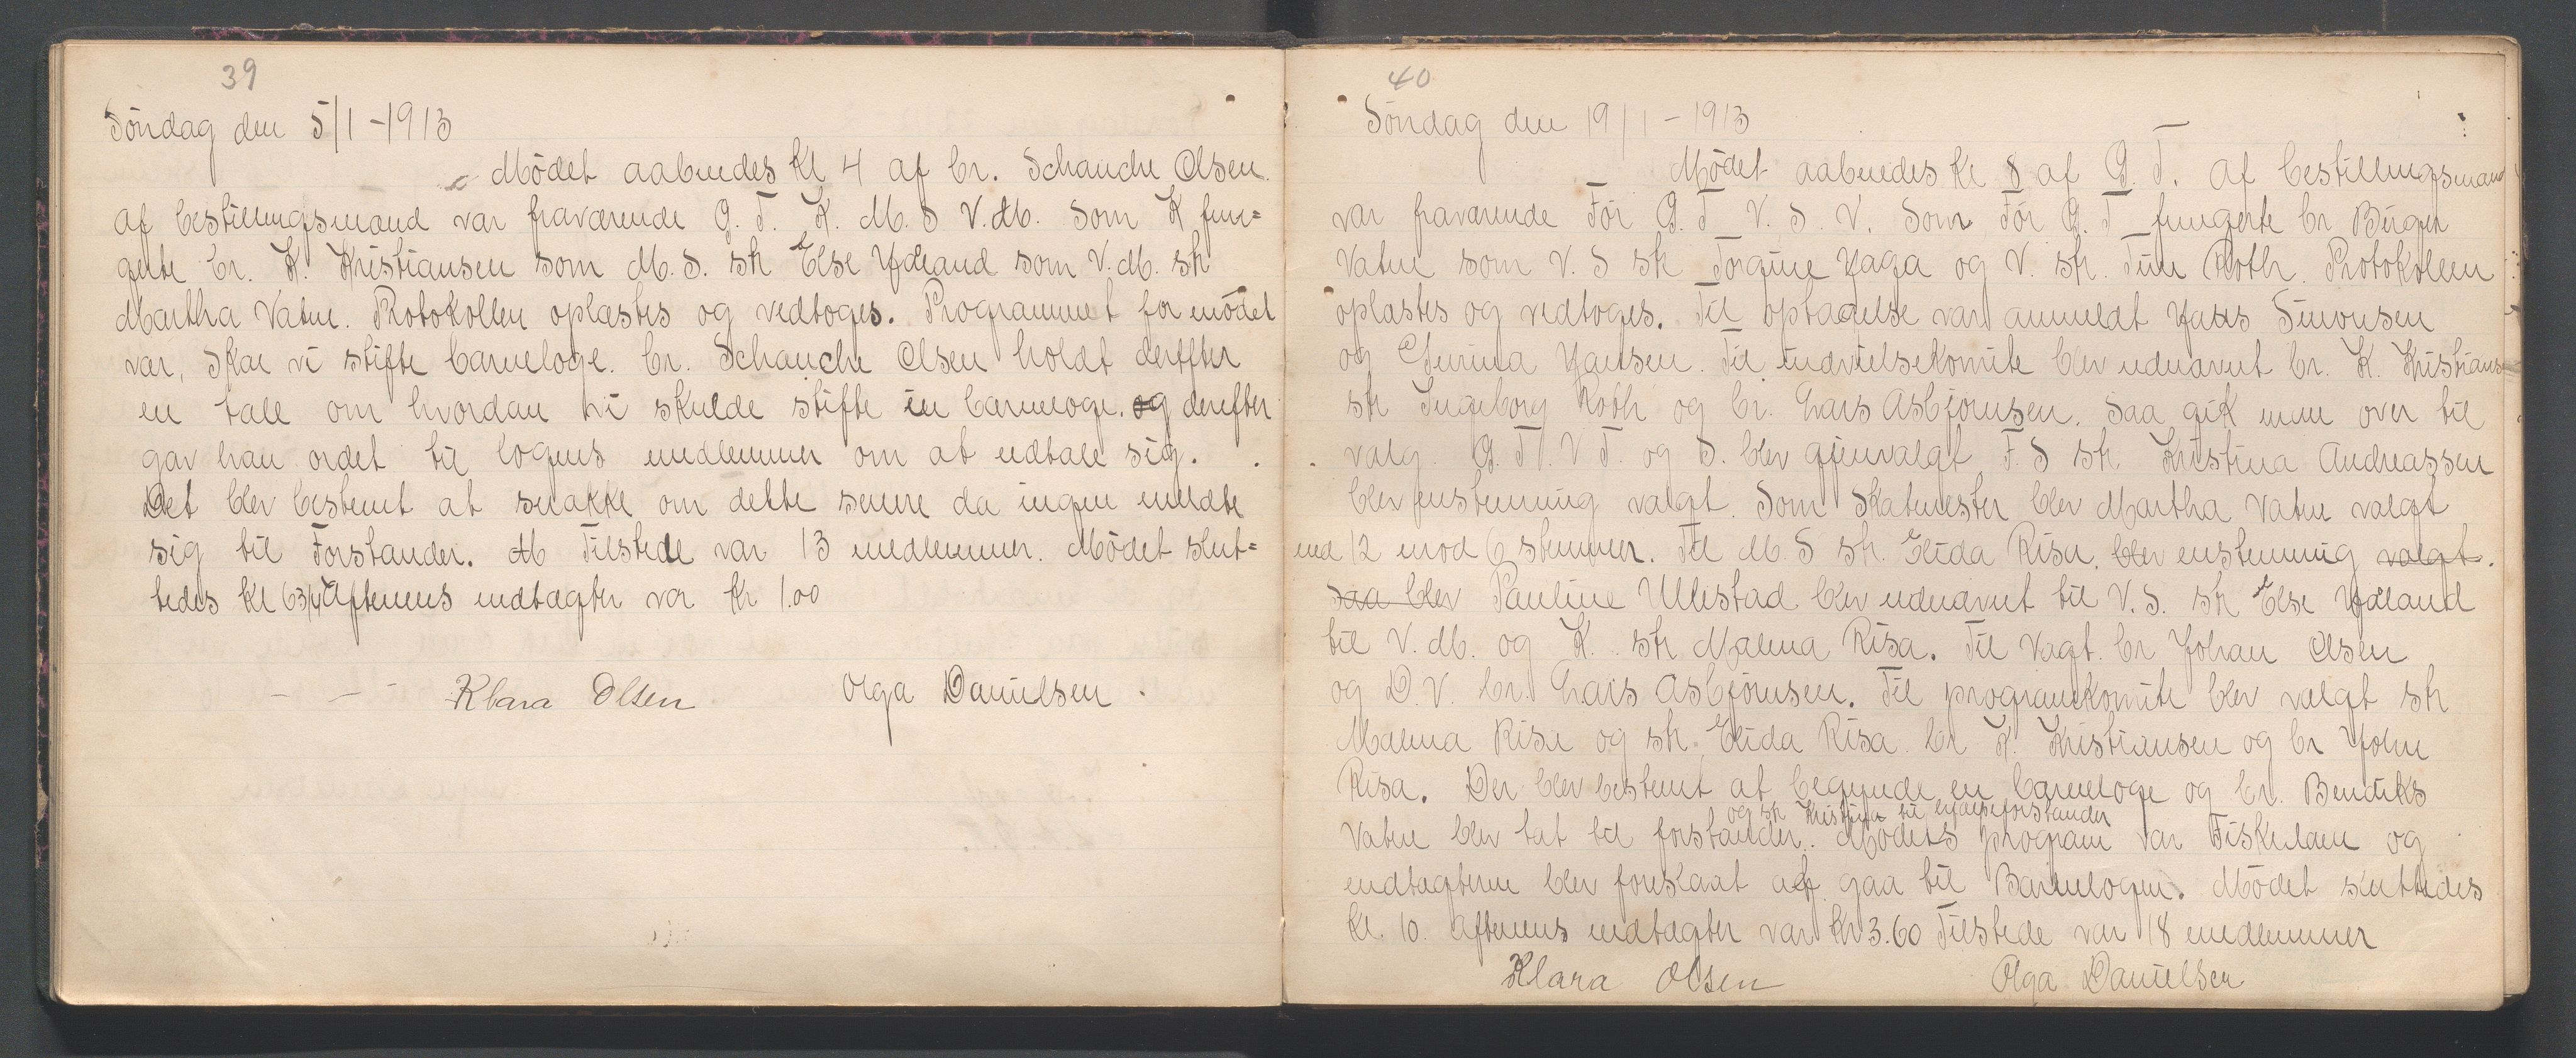 39
Söndag den 5/1 - 1913
Mödet aabnedes Kl 4 af br. Schanche Olsen.
Af bestillingsmænd var fraværende G. T. K. M. S V. M. Som K fun=
gerte br. K. Kristiansen som M. S. str Else Ydland som V. M. str
Martha Vatne. Protokollen oplæstes og vedtoges. Programmet for mödet
var, Skal vi stifte barneloge. br. Schanche Olsen holdt derefter
en tale om hvordan vi skulde stifte en barneloge. og derefter
gav han ordet til logens medlemmer om at udtale sig.
Det blev bestemt at snakke om dette senere da ingen meldte
sig til Forstander. M Tilstede var 13 medlemmer. Mödet slut=
tedes Kl 6 3/4 Aftenens indtægter var Kr 1.00
Klara Olsen Olga Danielsen.
40
Söndag den 19/1 - 1913
Mödet aabnedes Kl 8 af G. T. Af bestillingsmænd
var fraværende För G. T V. S. V. Som För G. T fungerte br Birger
Vatne som V. S str Torgine Haga og V. str. Tine Roth. Protokollen
oplæstes og vedtoges. Til optagelse var anmeldt Hans Simonsen
og Hansen. Til indvielseskomite blev udnævnt br. K. Kristians
str Ingeborg Roth og br. Lars Asbjörnsen. Saa gik man over til
valg. G. T. V T. og S. blev gjenvalgt F. S str Kristina Andreassen
blev enstemmig valgt. Som Skatmester blev Martha Vatne valgt
med 12 mod 6 stemmer. Til M. S str. Elida Risa. blev enstemmig valgt.
Saa blev Pauline Ullestad blev udnævnt til V. S. str Else Ydland
til V. M. og K. str Malena Risa. Til Vagt. br Johan Olsen
og D. V. br. Lars Asbjörnsen. Til programkomite blev valgt str
Malena Risa og str. Elida Risa. br K. Kristiansen og br John
Risa. Der blev bestemt at begynde en barneloge og br. Bendiks
og str Kristina til hjælpeforstander
Vatne blev tat til forstander. Mödets program var Fiskedam og
indtægterne blev foreslaat at gaa til Barnelogen. Mödet sluttedes
Kl. 10. Aftenens indtægter var Kr 3.60 Tilstede var 18 medlemmer
Klara Olsen Olga Danielsen